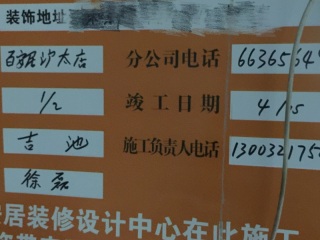 装饰地址
百安居沙太店 分公司电话 6636564
1/2 竣工日期 4/15
吉 池 施工负责人电话 130032175
徐磊
居装修设计中心在此施工